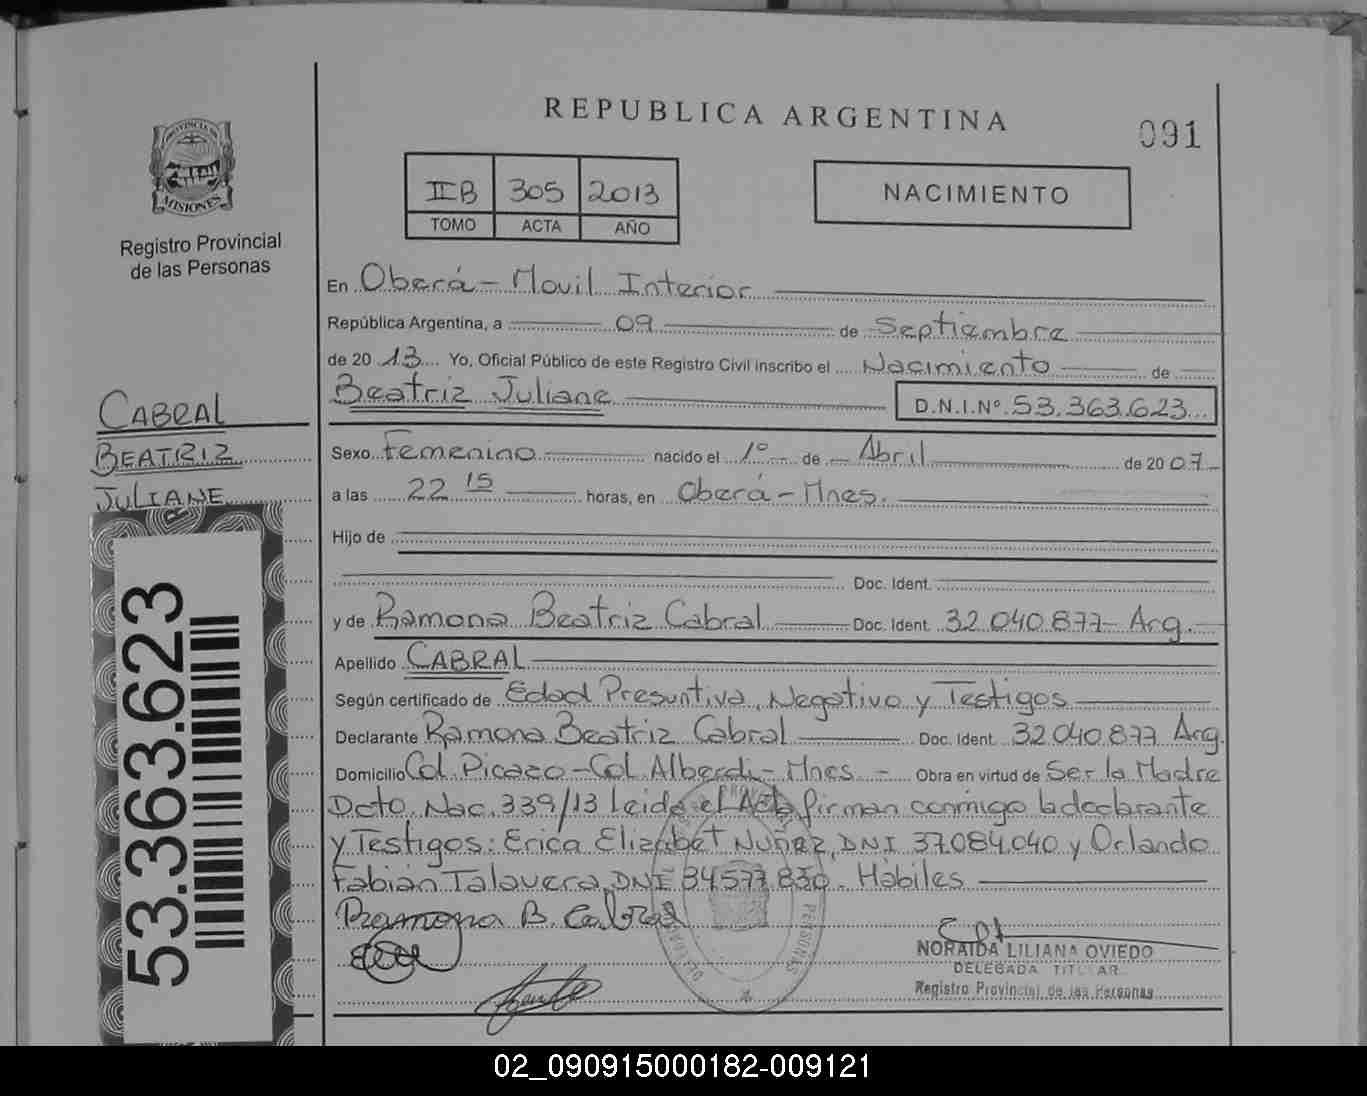 REPUBLICA ARGENTINA
091
PROVINCIA DE
MISIONES
Registro Provincial
de las Personas
IIB 305 2013
TOMO ACTA AÑO
NACIMIENTO
En Oberá - Movil Interior
República Argentina, a 09 de Septiembre
de 2013 Yo, Oficial Público de este Registro Civil inscribo el Nacimiento de
Beatriz Juliane D.N.I.Nº 53.363.623
CABRAL
BEATRIZ
JULIANE
Sexo Femenino nacido el 1º de Abril de 2007
a las 22 15 horas, en Oberá - Mnes.
Hijo de
Doc. Ident.
y de Ramona Beatriz Cabral Doc. Ident. 32.040.877 Arg.
Apellido CABRAL
Según certificado de Edad Presuntiva, Negativo y Testigos
Declarante Ramona Beatriz Cabral Doc. Ident. 32.040.877 Arg.
Domicilio Col. Picazo - Col. Alberdi - Mnes - Obra en virtud de Ser la Madre
Dcto. Nac. 339/13 Leida el Acta firman conmigo la declarante
y Testigos: Erica Elizabet Nuñez, DNI 37.084.040 y Orlando
Fabián Talavera, DNI 34.577.830. Hábiles
Ramona B. Cabral
NORAIDA LILIANA OVIEDO
DELEGADA TITULAR
Registro Provincial de las Personas
53.363.623
02_090915000182-009121